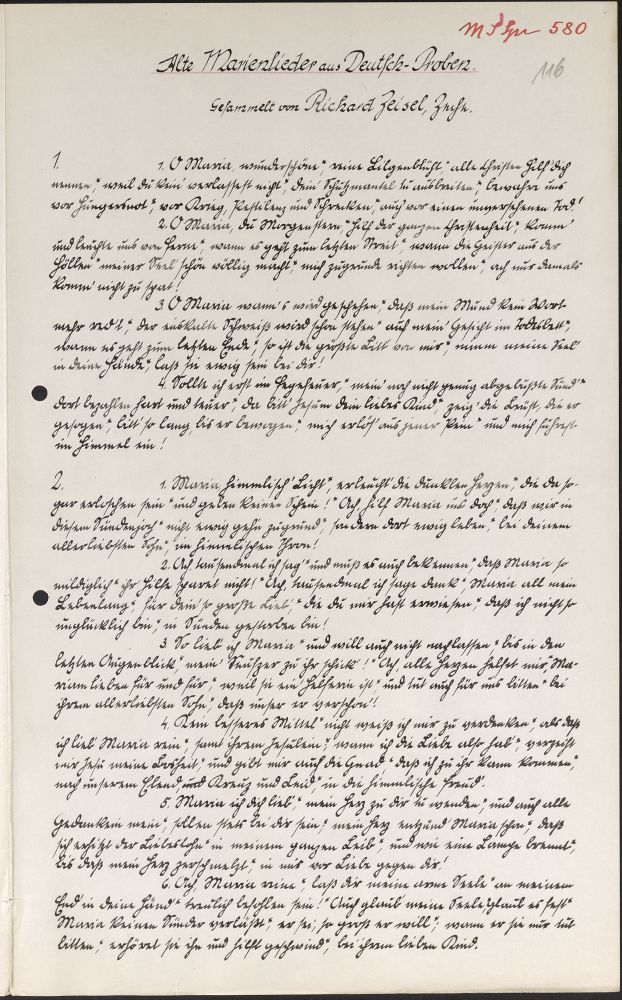 580
116
Alte Marienlieder aus Deutsch-Proben.
Gesammelt von Richard Zeisel, Zeche.
1. 1. O Maria, wunderschöne, reine Lilgenblüht, alle Christen Hilf dich
nennen, weil du kein verlassest nicht, dein Schutzmantel tu ausbreiten, bewahre uns
vor Hungersnot, vor Krieg, Pestilenz und Schrecken, auch vor einen unversehenen Tod!
2. O Maria, du Morgenstern, hilf der ganzen Christenheit, komm'
und leuchte uns von Ferne, wann es geht zum letzten Streit, wann die Geister aus der
Höllen meiner Seel' schön völlig macht, mich zugrunde richten wollen, ach nur damals
komm' nicht zu spat!
3. O Maria wann's wird geschehen, daß mein Mund kein Wort
mehr red't, der eiskalte Schweiß wird schon stehen auf mein' Gesicht im Todesbett,
wann es geht zum letzten Ende, so ist die größte Bitt von mir, nimm meine Seel'
in deine Hände, laß sie ewig sein bei dir!
4. Sollte ich erst im Fegefeuer, mein' noch nicht genug abgebüßte Sünd'
dort bezahlen hart und teuer, da bitt' Jesum dein liebes Kind, zeig' die Brüst, die er
gesogen, bitt' so lang, bis er bewogen, mich erlös' aus jener Pein und mich führest
im Himmel ein!
2. 1. Maria, himmlisch' Licht, erleucht' die dunklen Herzen, die da so-
gar erloschen sein und geben keinen Schein! Ach, hilf Maria uns doch, daß wir in
diesem Sündenjoch nicht ewig gehn zugrund, sondern dort ewig leben, bei deinem
allerliebsten Sohn, im himmlischen Thron!
2. Ach, tausendmal ich sag' und muß es auch bekennen, daß Maria so
mildiglich ihr Hilfe sparet nicht! Ach, tausendmal ich sage dank, Maria all mein
Lebenlang, für dein' so große Lieb, die du mir hast erwiesen, daß ich nicht so
unglücklich bin, in Sünden gestorben bin!
3. So lieb' ich Maria und will auch nicht nachlassen, bis in den
letzten Augenblick mein' Seufzer zu ihr schick'! Ach alle Herzen helfet mir, Ma-
riam lieben für und für, weil sie ein' Helferin ist, und tut auch für uns bitten bei
ihrem allerliebsten Sohn, daß unser er verschon'!
4. Kein besseres Mittel nicht weiß ich mir zu verdenken, als daß
ich lieb' Maria rein, samt ihrem Jesulein, wann ich die Liebe also hab', verzeiht
mir Jesu meine Bosheit, und gibt mir auch die Gnad' daß ich zu ihr kann kommen,
nach unserem Elend, und Kreuz und Leid, in die himmlische Freud'.
5. Maria ich dich lieb, mein Herz zu dir tu wenden, und auch alle
Gedanken mein, sollen stets bei dir sein, mein Herz entzünd' Maria schon, daß
sich erhitzt der Liebeslohn in meinem ganzen Leib, und wie eine Lampe brennt,
bis daß mein Herz zerschmelzt, in mir vor Liebe gegen dir!
6. Ach, Maria reine, laß dir meine arme Seele an meinem
End' in deine Händ' treulich befohlen sein! Auch glaub' meine Seele, glaub es fest
Maria keinen Sünder verläßt, er sei, so groß er will, wann er sie nur tut
bitten, erhöret sie ihn und hilft geschwind, bei ihrem lieben Kind.